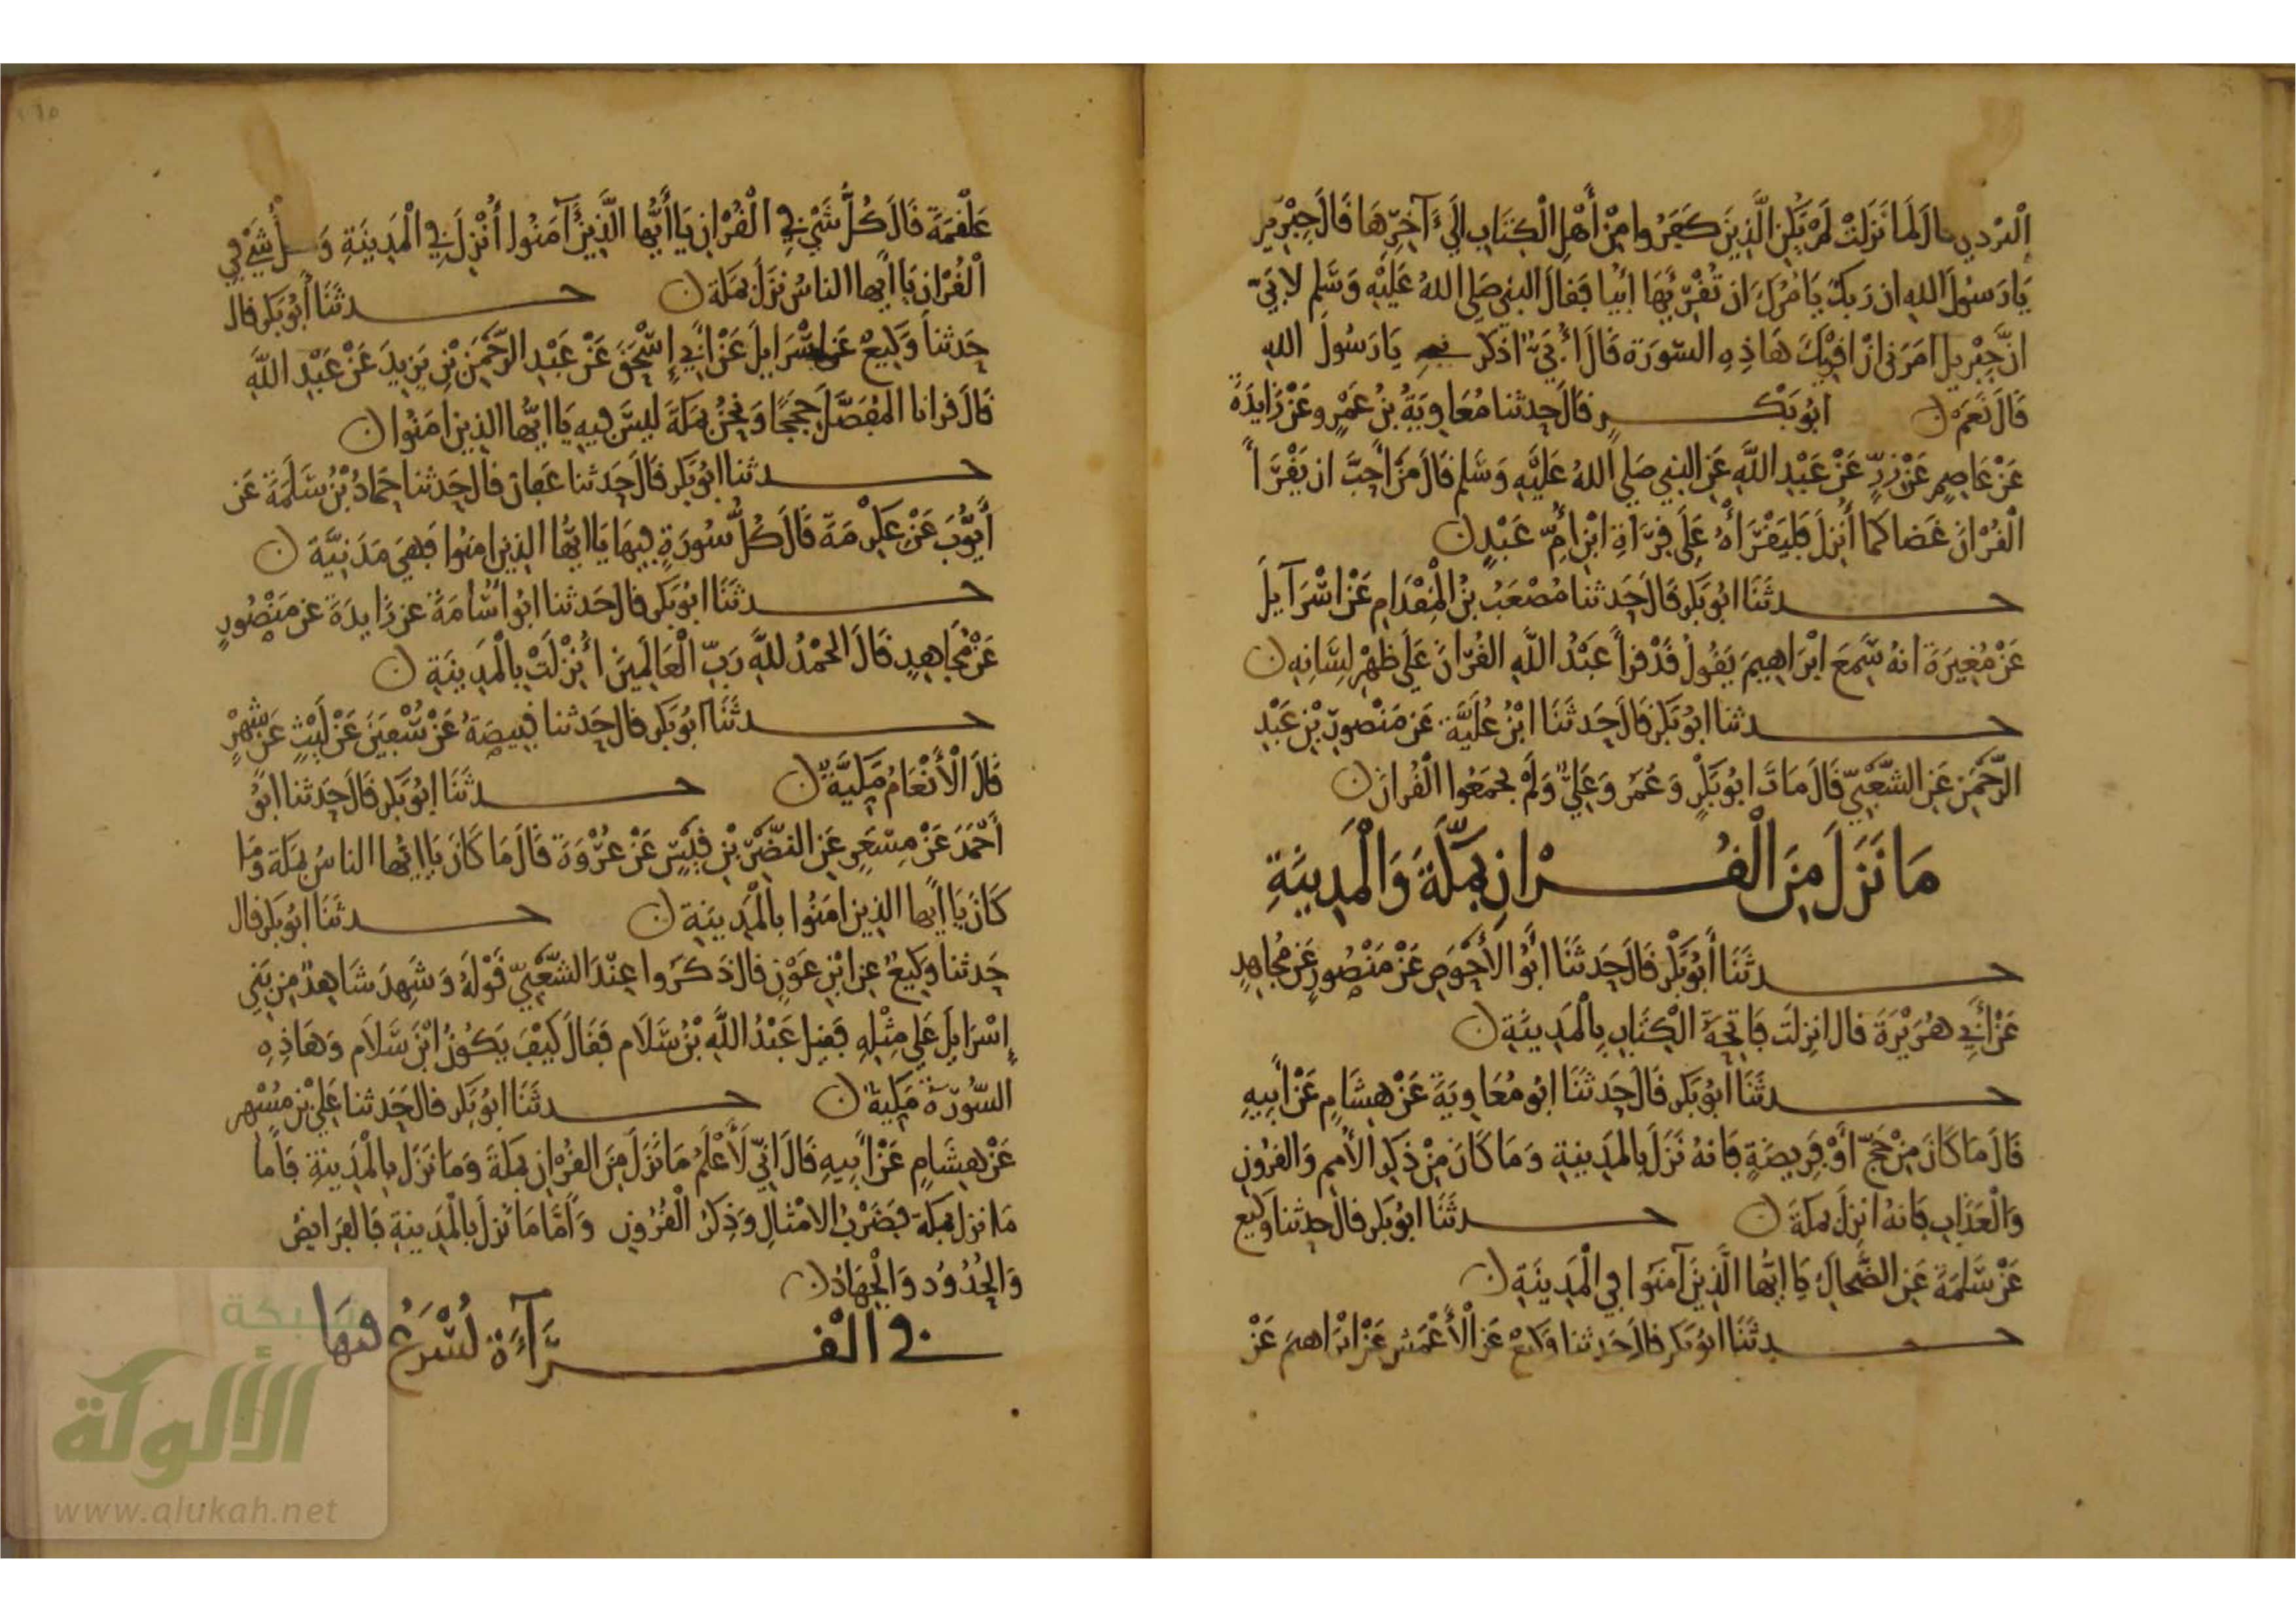 البدري قال لما نزلت لم يكن الذين كفروا من أهل الكتاب إلى آخرها قال جبريل
يا رسول الله ان ربك يامرك ان تقريها ابيا فقال النبي صلى الله عليه وسلم لابي
ان جبريل امرني ان اقريك هاذه السورة قال أبي اذكر يا رسول الله
قال نعم ن ابو بكر قال حدثنا معاوية بن عمرو عن زايدة
عن عاصم عن زر عن عبد الله عن النبي صلى الله عليه وسلم قال من أحب ان يقرأ
القرآن غضا كما أنزل فليقرأه على قراة ابن أم عبد ن
حدثنا ابو بكر قال حدثنا مصعب بن المقدام عن اسرآيل
عن مغيرة انه سمع ابراهيم يقول قد قرأ عبد الله القران على ظهر لسانه ن
حدثنا ابو بكر قال حدثنا ابن علية عن منصور بن عبد
الرحمن عن الشعبي قال مات ابو بكر وعمر وعلي ولم يجمعوا القران ن
ما نزل من القران بمكة والمدينة
حدثنا أبو بكر قال حدثنا أبو الأحوص عن منصور عن مجاهد
عن أبي هريرة قال انزلت فاتحة الكتاب بالمدينة ن
حدثنا أبو بكر قال حدثنا ابو معاوية عن هشام عن أبيه
قال ما كان من حج أو فريضة فانه نزل بالمدينة وما كان من ذكر الأمم والقرون
والعذاب فانه انزل بمكة ن حدثنا ابو بكر قال حدثنا وكيع
عن سلمة عن الضحاك يا ايها الذين آمنوا في المدينة ن
حدثنا ابو بكر قال حدثنا وكيع عن الأعمش عن ابراهيم عن
علقمة قال كل شي في القران يا أيها الذين آمنوا أنزل في المدينة وكل شي في
القران يا أيها الناس نزل بمكة ن حدثنا أبو بكر قال
حدثنا وكيع عن إسرايل عن أبي إسحق عن عبد الرحمن بن يزيد عن عبد الله
قال قرانا المفصل حججا ونحن بمكة ليس فيه يا ايها الذين امنوا ن
حدثنا ابو بكر قال حدثنا عفان قال حدثنا حماد بن سلمة عن
أيوب عن عكرمة قال كل سورة فيها يا ايها الذين امنوا فهي مدنية ن
حدثنا ابو بكر قال حدثنا ابو أسامة عن زايدة عن منصور
عن مجاهد قال الحمد لله رب العالمين أنزلت بالمدينة ن
حدثنا ابو بكر قال حدثنا قبيصة عن سفين عن ليث عن شهر
قال الأنعام مكية ن حدثنا ابو بكر قال حدثنا ابو
أحمد عن مسعر عن النضر بن قيس عن عروة قال ما كان يا ايها الناس بمكة وما
كان يا أيها الذين امنوا بالمدينة ن حدثنا أبو بكر قال
حدثنا وكيع عن ابن عون قال ذكروا عند الشعبي قوله وشهد شاهد من بني
إسرايل على مثله فقيل عبد الله بن سلام فقال كيف يكون ابن سلام وهاذه
السورة مكية ن حدثنا ابو بكر قال حدثنا علي بن مسهر
عن هشام عن أبيه قال اني لأعلم ما نزل من القران بمكة وما نزل بالمدينة فأما
ما نزل بمكة فضرب الامثال وذكر القرون وأما ما نزل بالمدينة فالفرايض
والحدود والجهاد ن
في القرآءة يسرع فيها
شبكة
الألوكة
www.alukah.net